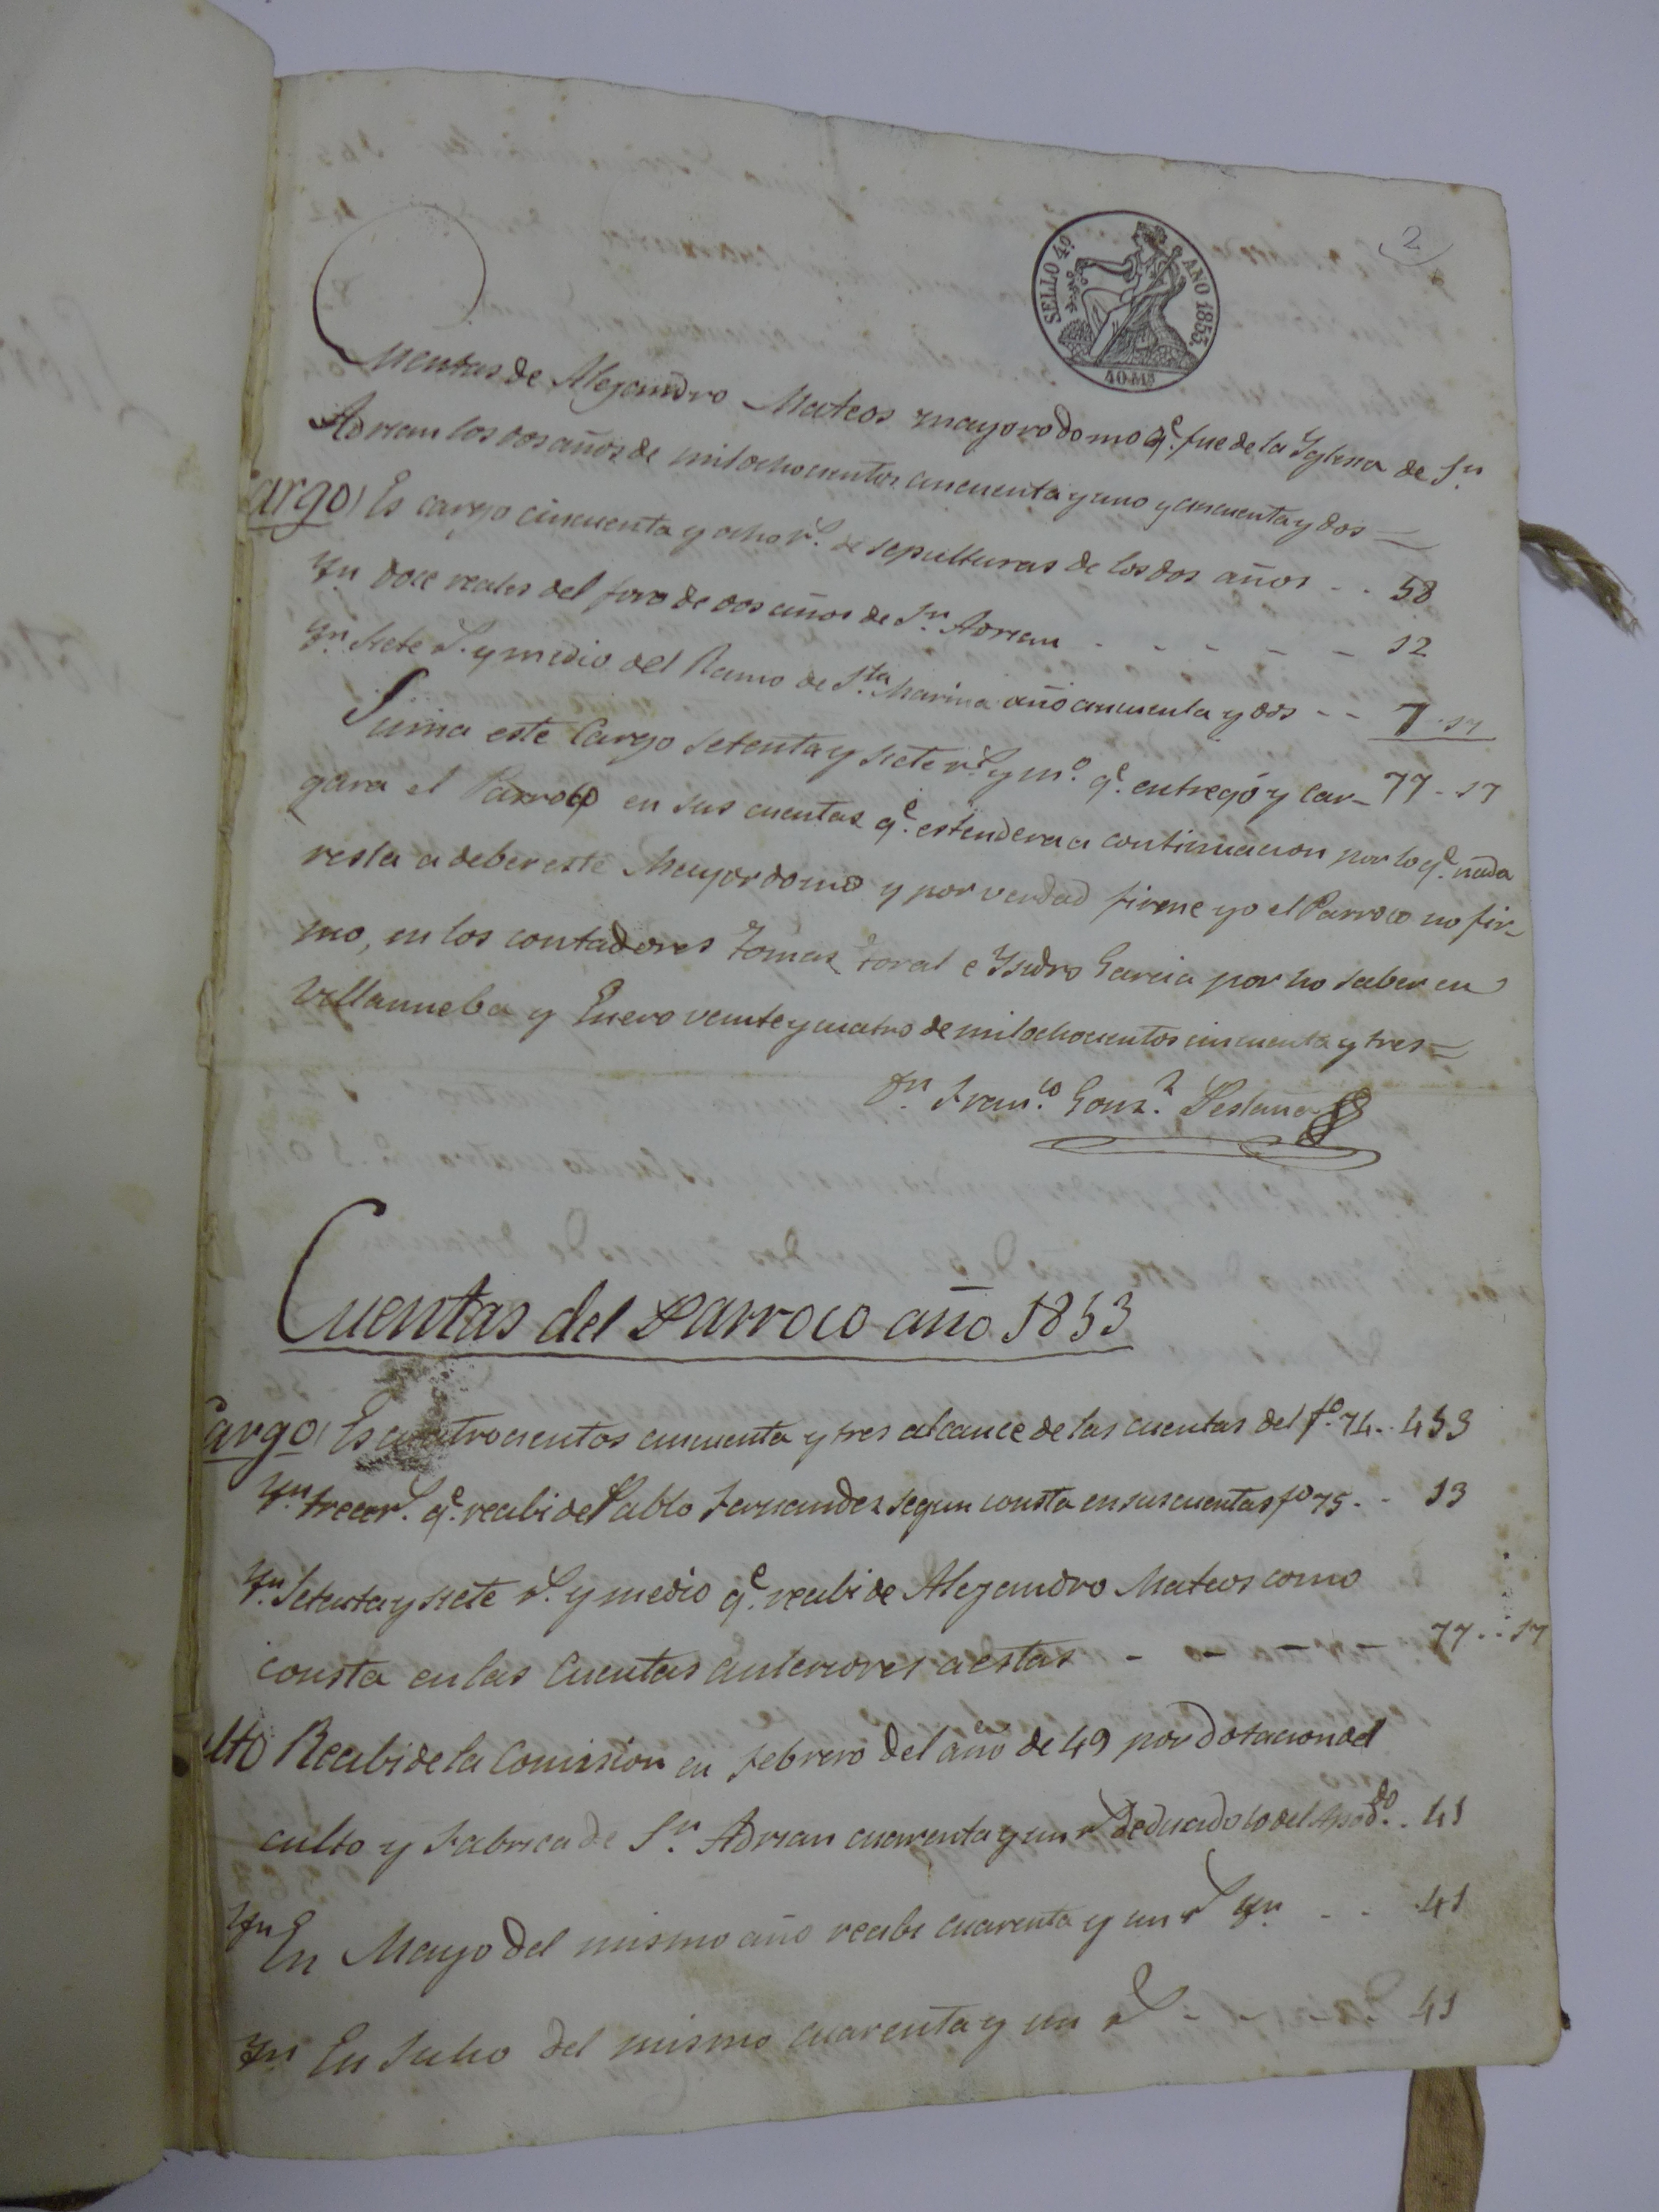 2
SELLO 4º AÑO 1853. 40 Ms
Cuentas de Alejandro Mateos mayorodomo qe. fue de la Yglesia de Sn.
Adrian los dos años de mil ochocientos cincuenta y uno y cincuenta y dos =
argo) Es cargo cincuenta y ocho rs. de sepulturas de los dos años - - 58
Yn doce reales del foro de dos años de Sn. Adrian - - - - - 12
Yn. siete rs. y medio del Ramo de Sta. Marina año cincuenta y dos - - 7 - 17
Suma este Cargo setenta y siete rs. y mo. qe. entregó y car- 77 - 17
gara el Parroco en sus cuentas qe. estendera a continuacion por lo qe. nada
resta a deber este Mayordomo y por verdad firme yo el Parroco no fir-
mo, en los contadores Tomas Toral e Ysidro Garcia por no saber en
Villanueba y Enero veinte y cuatro de mil ochocientos cincuenta y tres =
Dn. Franco. Gonz. Pestaña
Cuentas del Parroco año 1853
argo) Es cuatrocientos cincuenta y tres alcance de las cuentas del fo. 74 - - 453
Yn. trece rs. qe. recibi de Pablo Fernandez segun consta en sus cuentas fo 75 - - 13
Yn. Setenta y siete rs. y medio qe. recibi de Alejandro Mateos como
consta en las Cuentas anteriores a estas - - - - 77 - - 17
ulto Recibi de la Comision en febrero del año de 49 por Dotacion del
culto y Fabrica de Sn. Adrian cuarenta y un rs deducido lo del Apodo. - - 41
Yn En Mayo del mismo año recibi cuarenta y un rs Yn - - 41
Yn En Julio del mismo cuarenta y un rs - - - 41